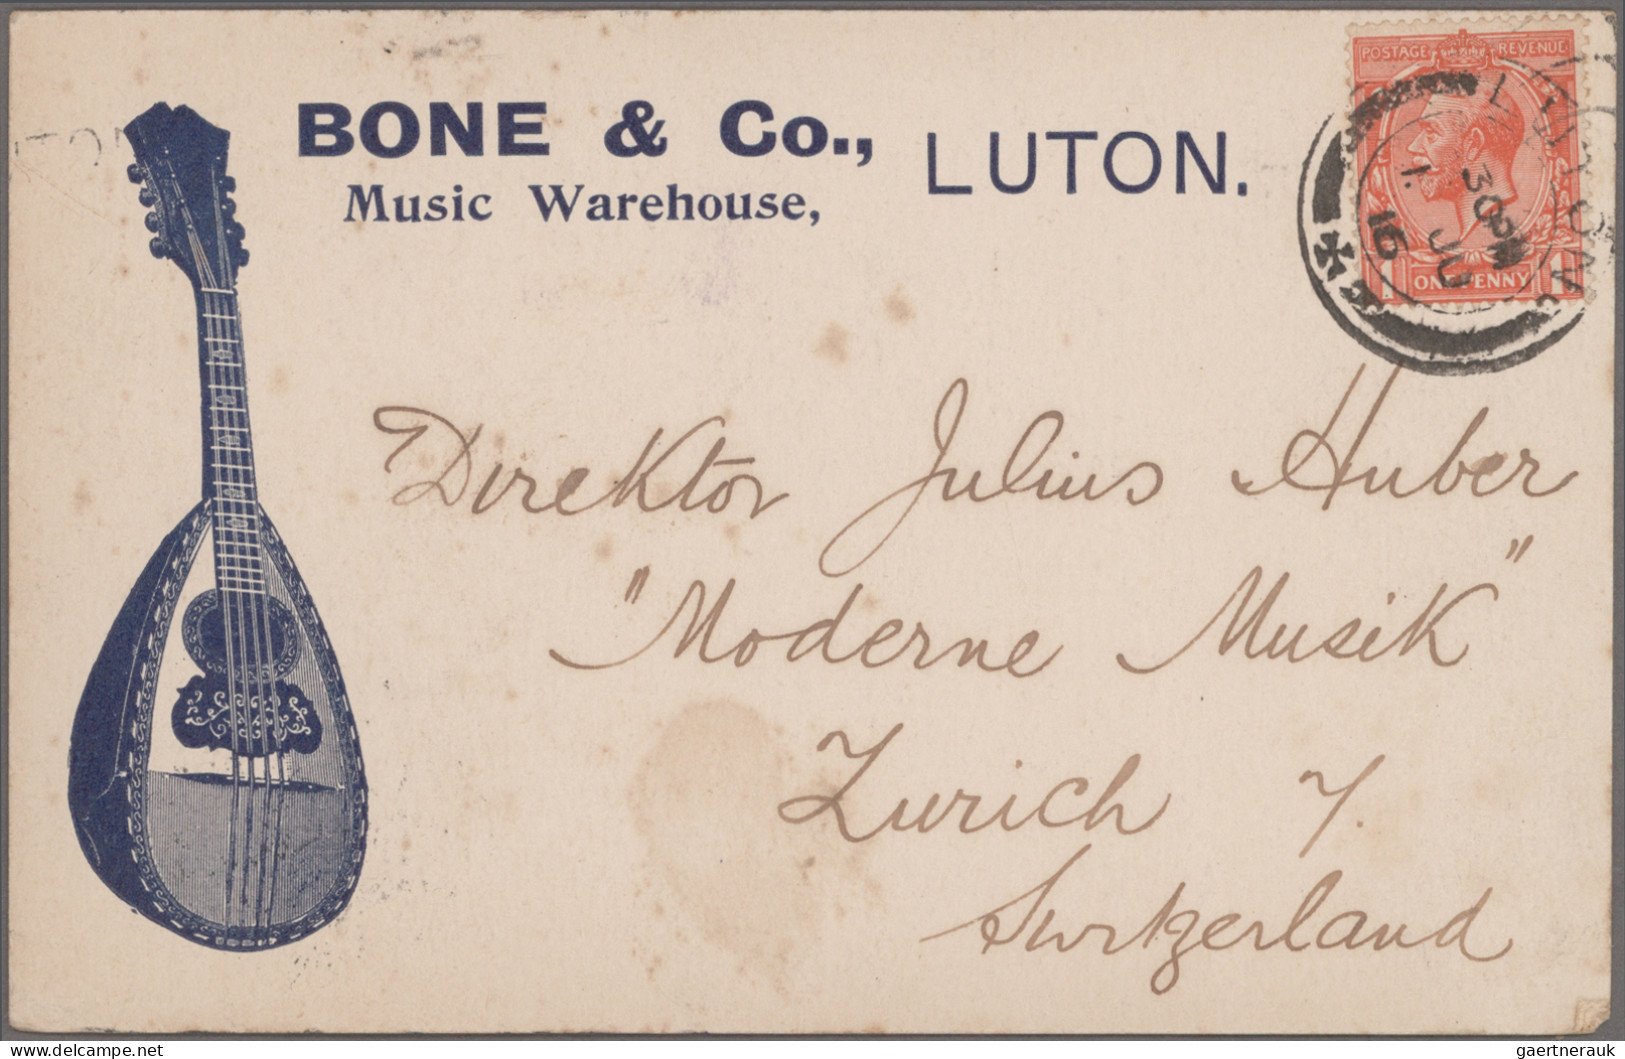 BONE & Co., LUTON.
Music Warehouse,
POSTAGE REVENUE
1 ONE PENNY 1
LUTON
30 PM
1 JU
16
Direktor Julius Huber
"Moderne Musik"
Zurich 7.
Switzerland
delcampe.net
gaertnerauk